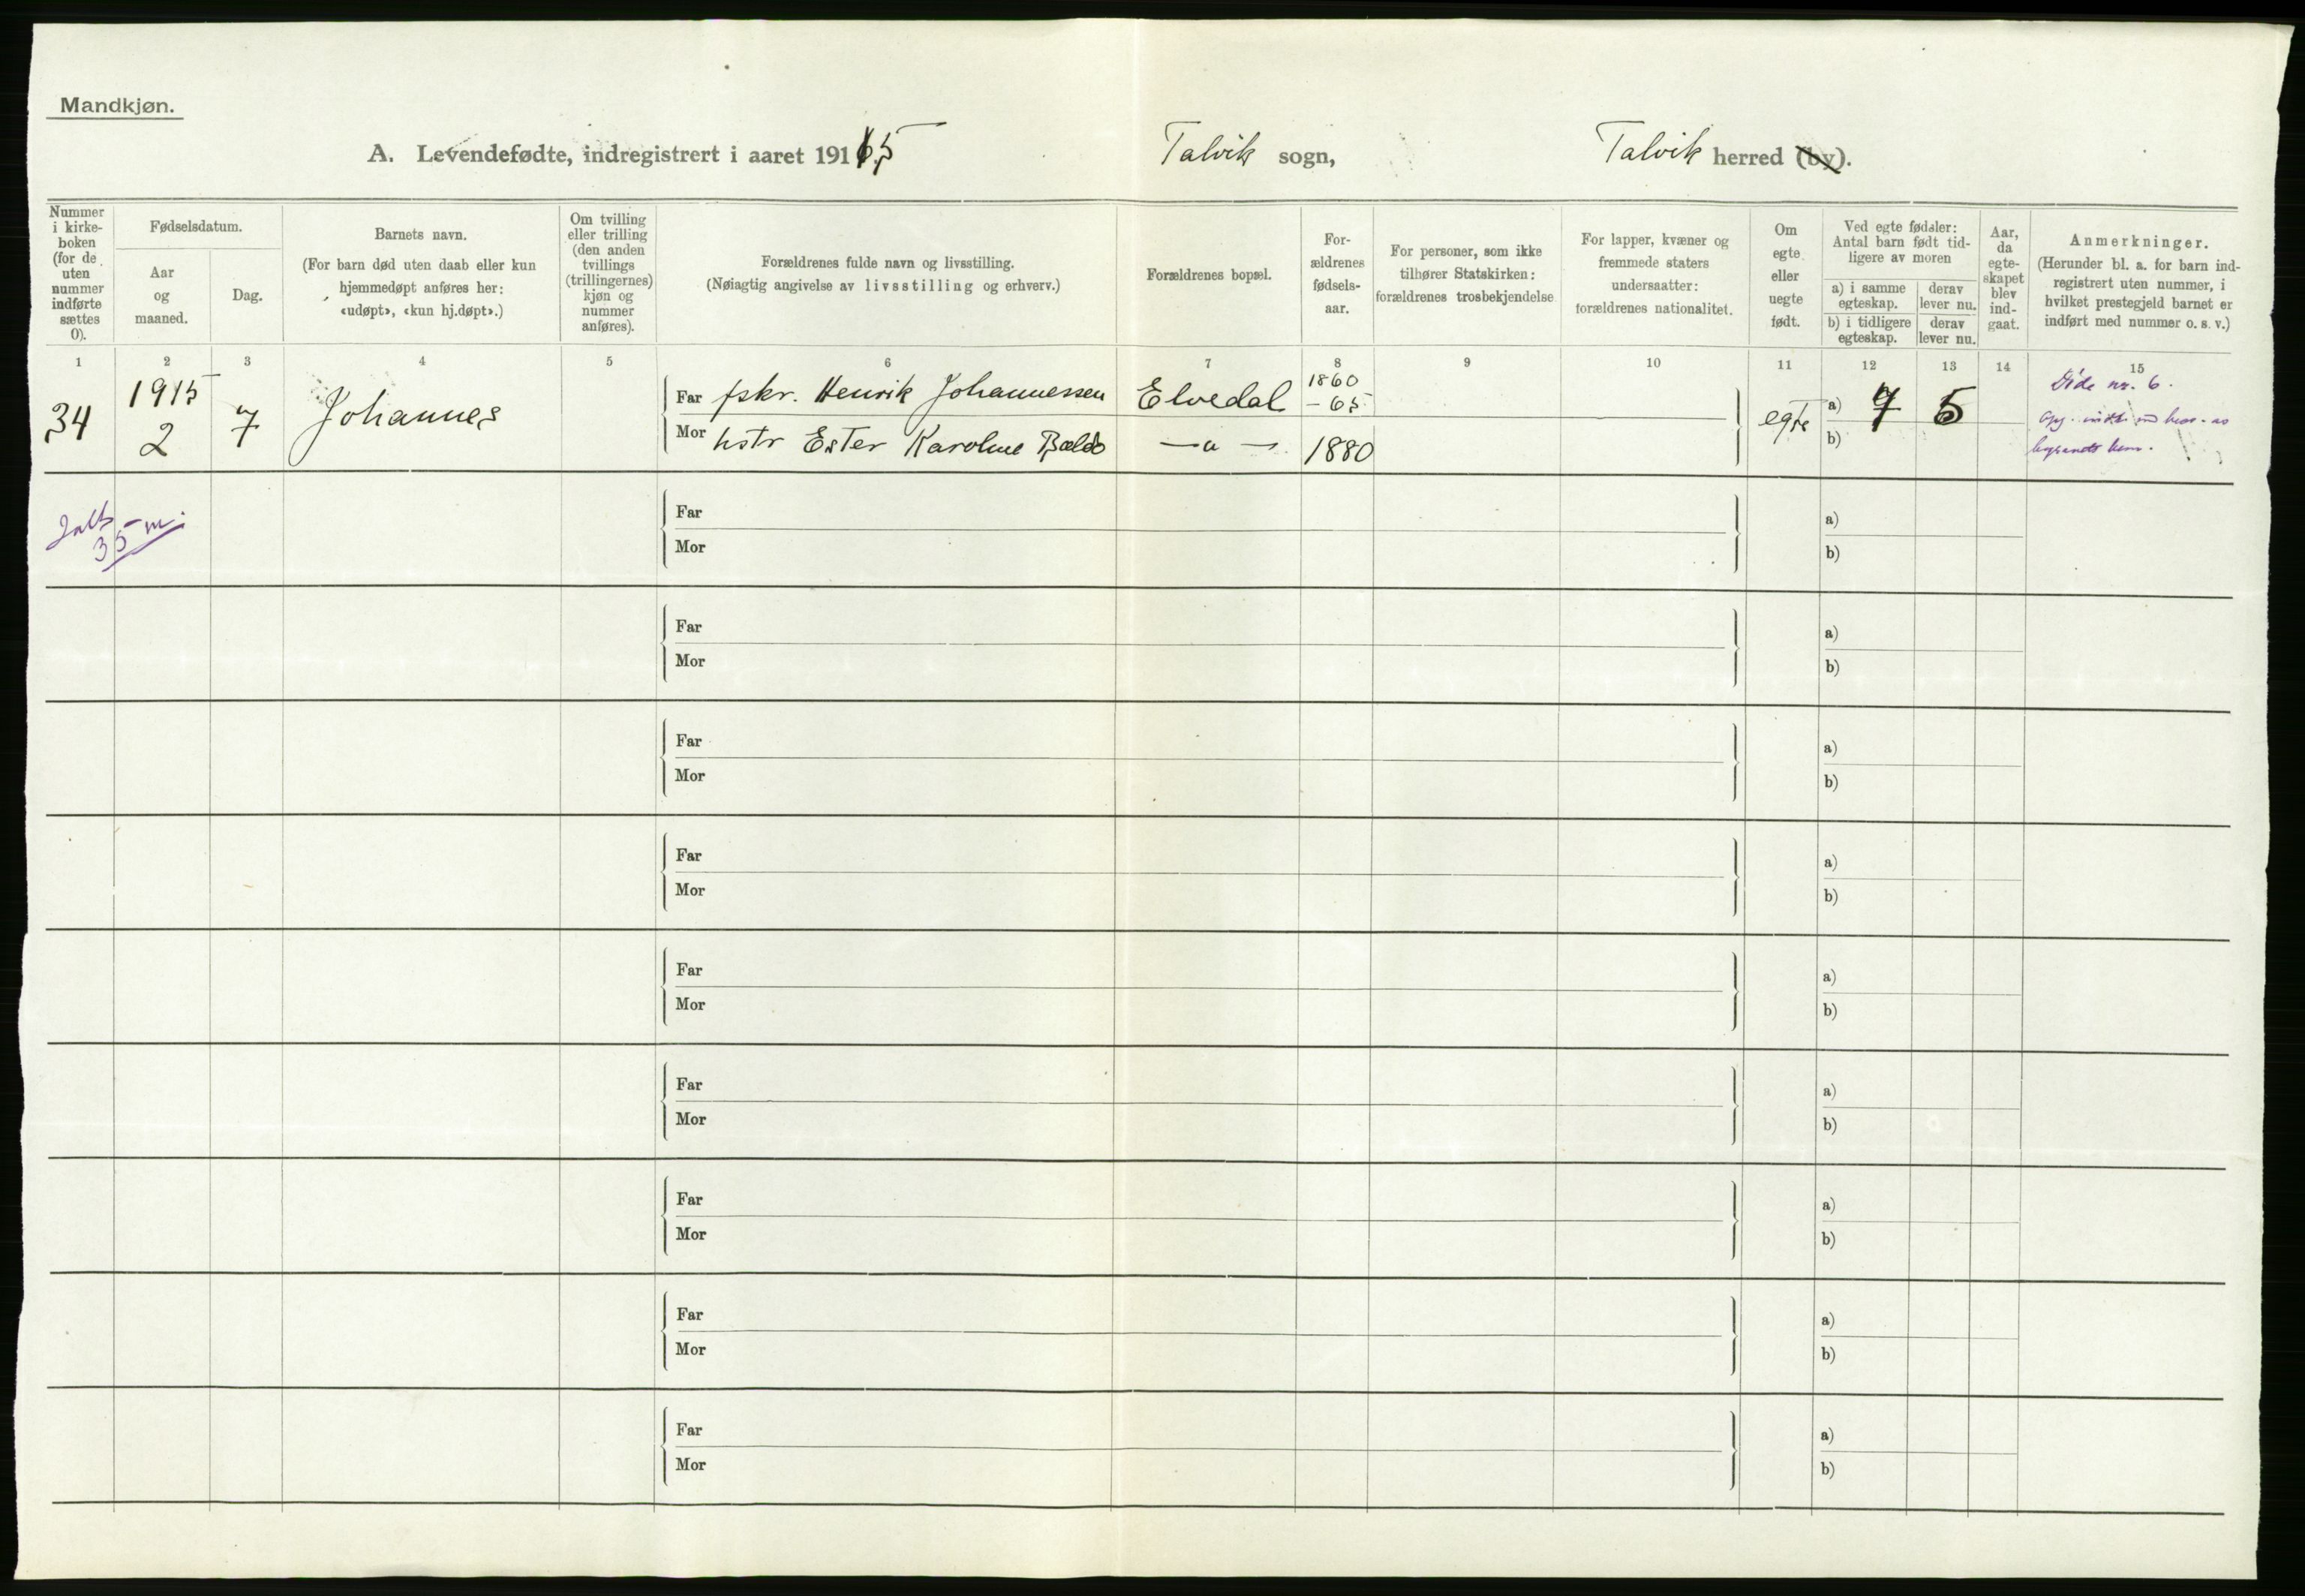 Mandkjøn.
A. Levendefødte, indregistrert i aaret 1915 Talvik sogn, Talvik herred (by).
Nummer i kirke-boken (for de uten nummer indførte sættes 0).
Fødselsdatum.
Aar og maaned.
Dag.
Barnets navn.
(For barn død uten daab eller kun hjemmedøpt anføres her: «udøpt», «kun hj.døpt».)
Om tvilling eller trilling (den anden tvillings (trillingernes) kjøn og nummer anføres).
Forældrenes fulde navn og livsstilling.
(Nøiagtig angivelse av livsstilling og erhverv.)
Forældrenes bopæl.
For-ældrenes fødsels-aar.
For personer, som ikke tilhører Statskirken: forældrenes trosbekjendelse
For lapper, kvæner og fremmede staters undersaatter: forældrenes nationalitet.
Om egte eller uegte født.
Ved egte fødsler: Antal barn født tid-ligere av moren
a) i samme egteskap.
derav lever nu.
b) i tidligere egteskap.
derav lever nu.
Aar, da egte-skapet blev ind-gaat.
Anmerkninger.
(Herunder bl. a. for barn ind-registrert uten nummer, i hvilket prestegjeld barnet er indført med nummer o. s. v.)
1 2 3 4 5 6 7 8 9 10 11 12 13 14 15
34 1915 2 7 Johannes
Far fskr. Henrik Johannessen Elvedal 1860 - 65
Mor hstr Ester Karoline Bælds — " — 1880
egte a) 7 5
b)
Side nr. 6.
Ialt 35 m.
Far a)
Mor b)
Far a)
Mor b)
Far a)
Mor b)
Far a)
Mor b)
Far a)
Mor b)
Far a)
Mor b)
Far a)
Mor b)
Far a)
Mor b)
Far a)
Mor b)